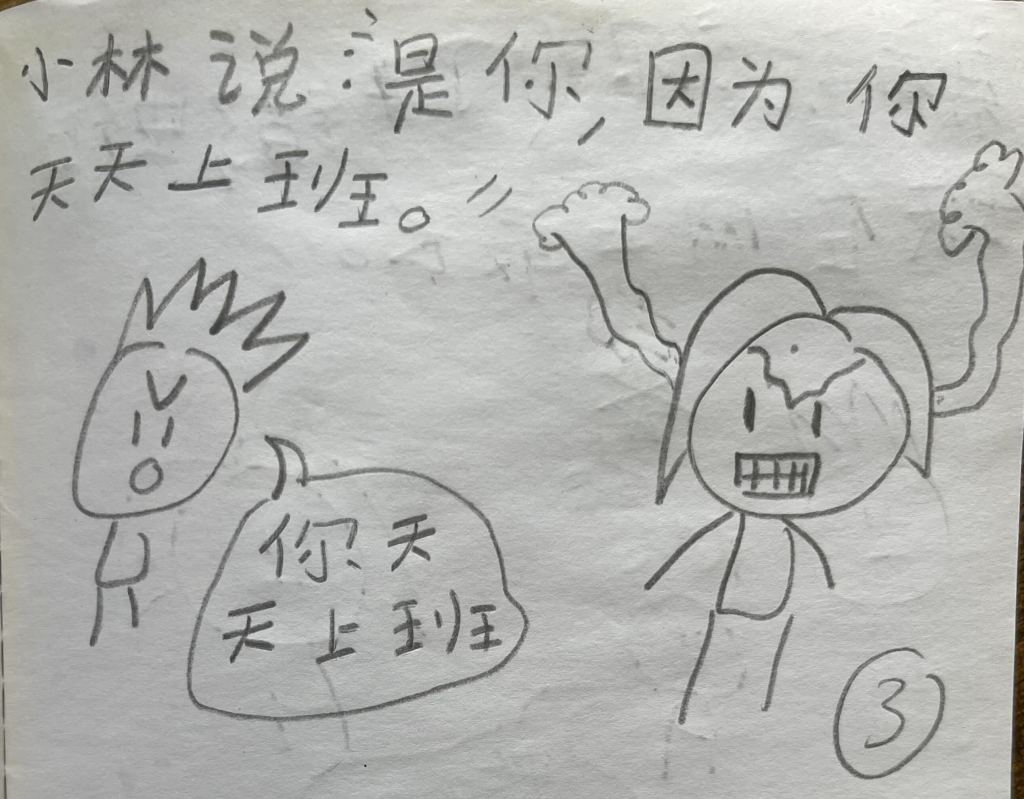 小林说:“是你,因为你
天天上班。”
你天
天上班
3